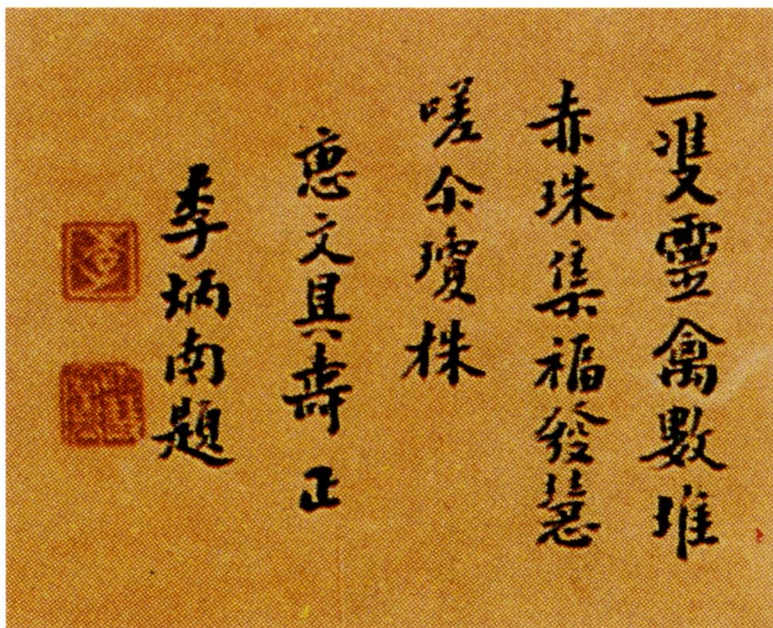 一雙靈禽數堆
赤珠集福發慧
嗟尒瓊株
惠文具壽正
李炳南題